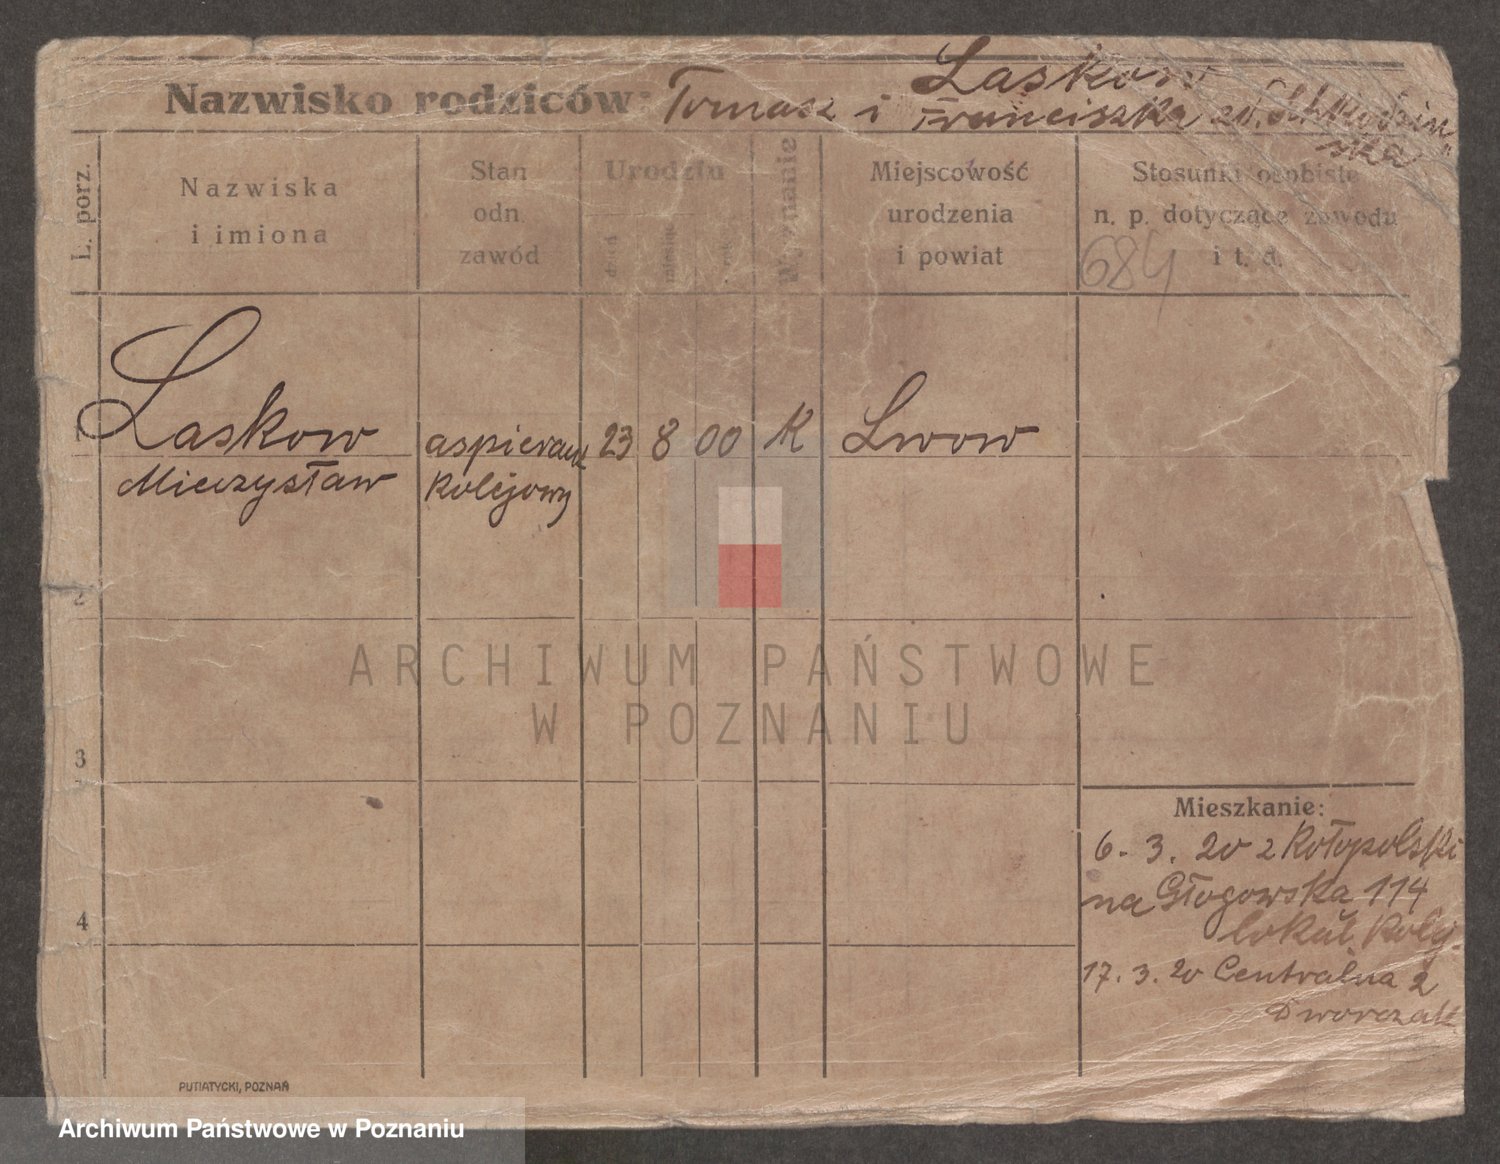 Laskow
Nazwisko rodziców: Tomasz i Franciszka zd.
ska
L. porz.
Nazwiska
i imiona
Stan
odn.
zawód
Urodziu
dzień
miesiąc
rok
Wyznanie
Miejscowość
urodzenia
i powiat
Stosunki osobiste
n. p. dotyczące zawodu
i t. d.
684
1
Laskow
Mieczysław
aspierant
kolejowy
23 8 00 K Lwow
2
3
4
ARCHIWUM PAŃSTWOWE
W POZNANIU
Mieszkanie:
6. 3. 20 z
na Głogowska 114
lokal. kolej.
17. 3. 20 Centralna 2
Dworczak
PUTIATYCKI, POZNAŃ
Archiwum Państwowe w Poznaniu